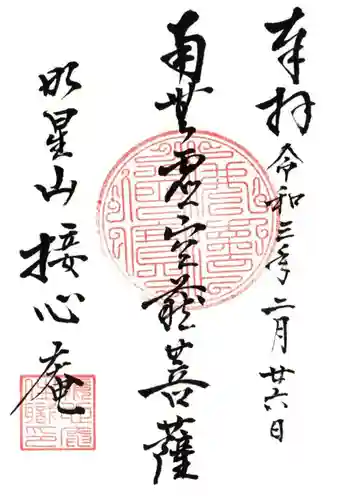 奉拝 令和三年二月廿六日
南無虚空蔵菩薩
明星山 接心庵